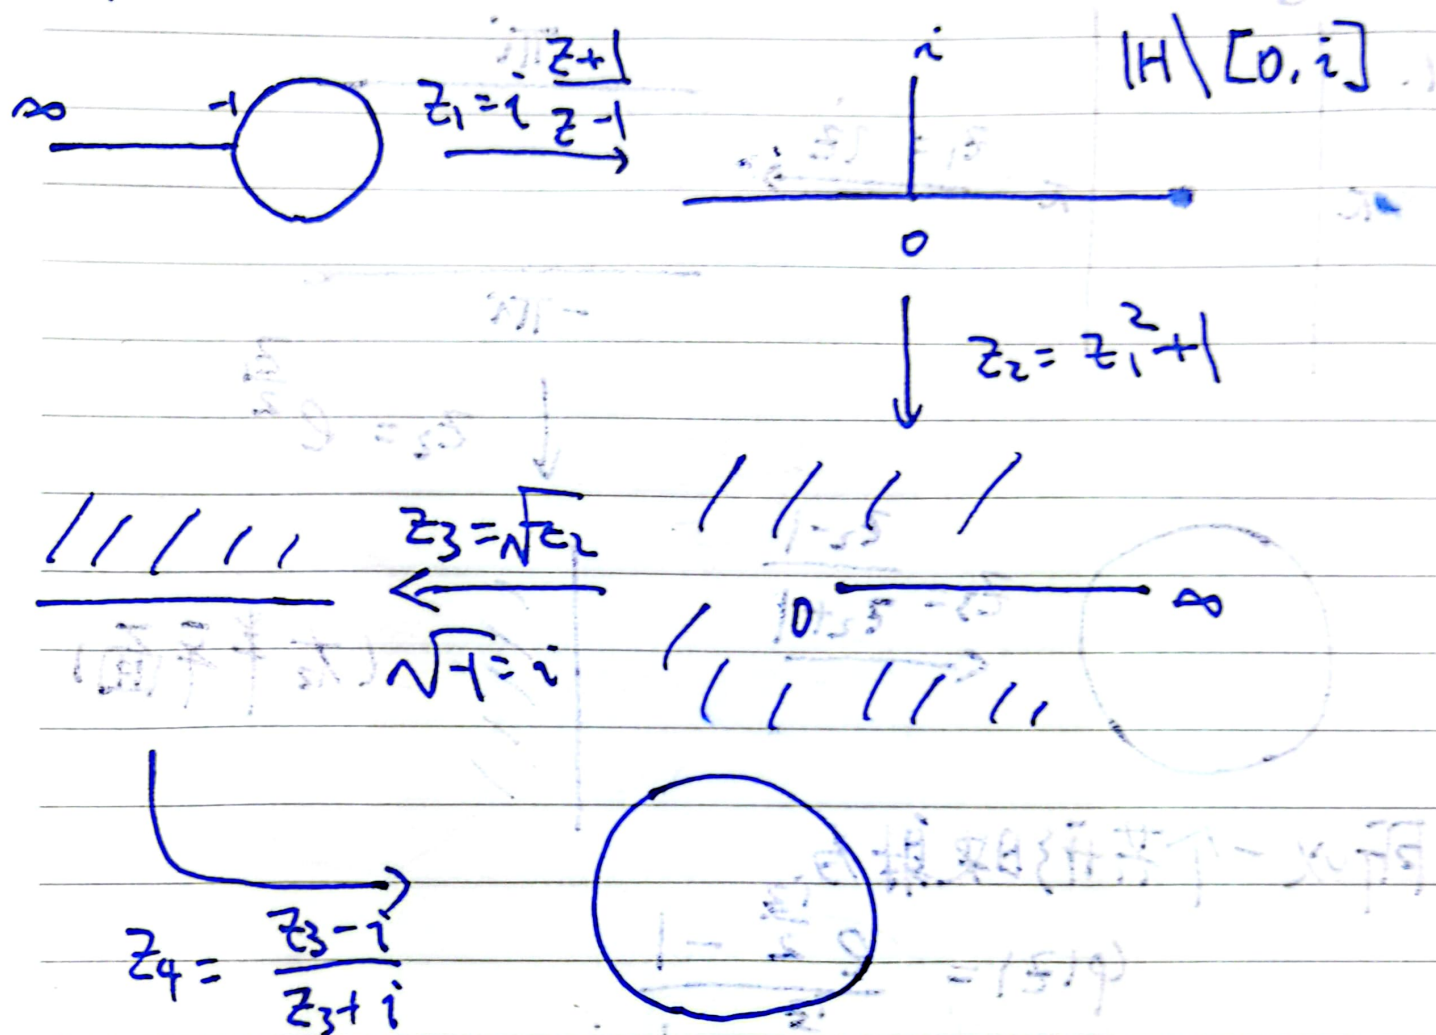 ∞ -1 z₁ = i (z+1)/(z-1) i |H\[0,i]
0
z₂ = z₁² + 1
z₃ = √z₂
√-1 = i
0 ∞
z₄ = (z₃-i)/(z₃+i)